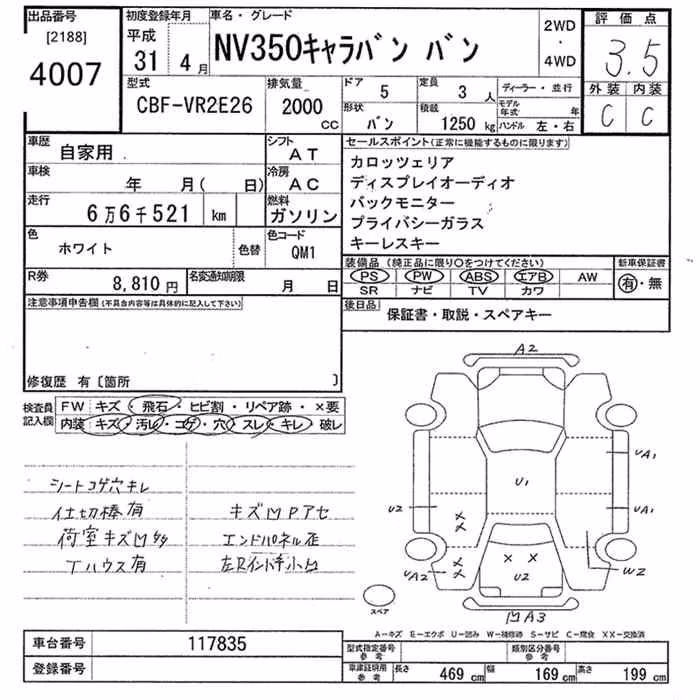 出品番号
[2188]
4007
初度登録年月
平成
31 4月
車名・グレード
NV350キャラバン バン
2WD
・
4WD
評価点
3.5
外装 内装
C C
型式
CBF-VR2E26
排気量
2000
CC
ドア 5
定員 3 人
形状 バン
積載 1250 kg
ディーラー・並行
モデル年式 年
ハンドル 左・右
車歴 自家用
シフト
AT
車検 年 月( 日)
冷房
AC
走行 6万6千521 km
燃料
ガソリン
色 ホワイト 色替
色コード
QM1
R券 8,810 円
名変通知期限 月 日
セールスポイント(正常に機能するものに限ります)
カロッツェリア
ディスプレイオーディオ
バックモニター
プライバシーガラス
キーレスキー
装備品 (純正品に限り○をつけてください)
PS PW ABS エアB AW
SR ナビ TV カワ
新車保証書
有・無
後日品 保証書・取説・スペアキー
注意事項申告欄(不具合内容等は具体的に記入して下さい)
修復歴 有〔箇所 〕
検査員記入欄
FW キズ・飛石・ヒビ割・リペア跡・×要
内装 キズ・汚レ・コゲ・穴・スレ・キレ・破レ
シートコゲ穴キレ
仕切棒有
荷室キズ凹
Tハウス有
キズ凹Pアセ
エンドパネル歪
A2
UA1
U1
U2
UA1
UA2
U2
W2
凹A3
スペア
A−キズ E−エクボ U−凹み W−補修跡 S−サビ C−腐食 XX−交換済
車台番号 117835
登録番号
型式指定番号
参考
類別区分番号
参考
車庫証明用
参考
長さ 469 cm 幅 169 cm 高さ 199 cm